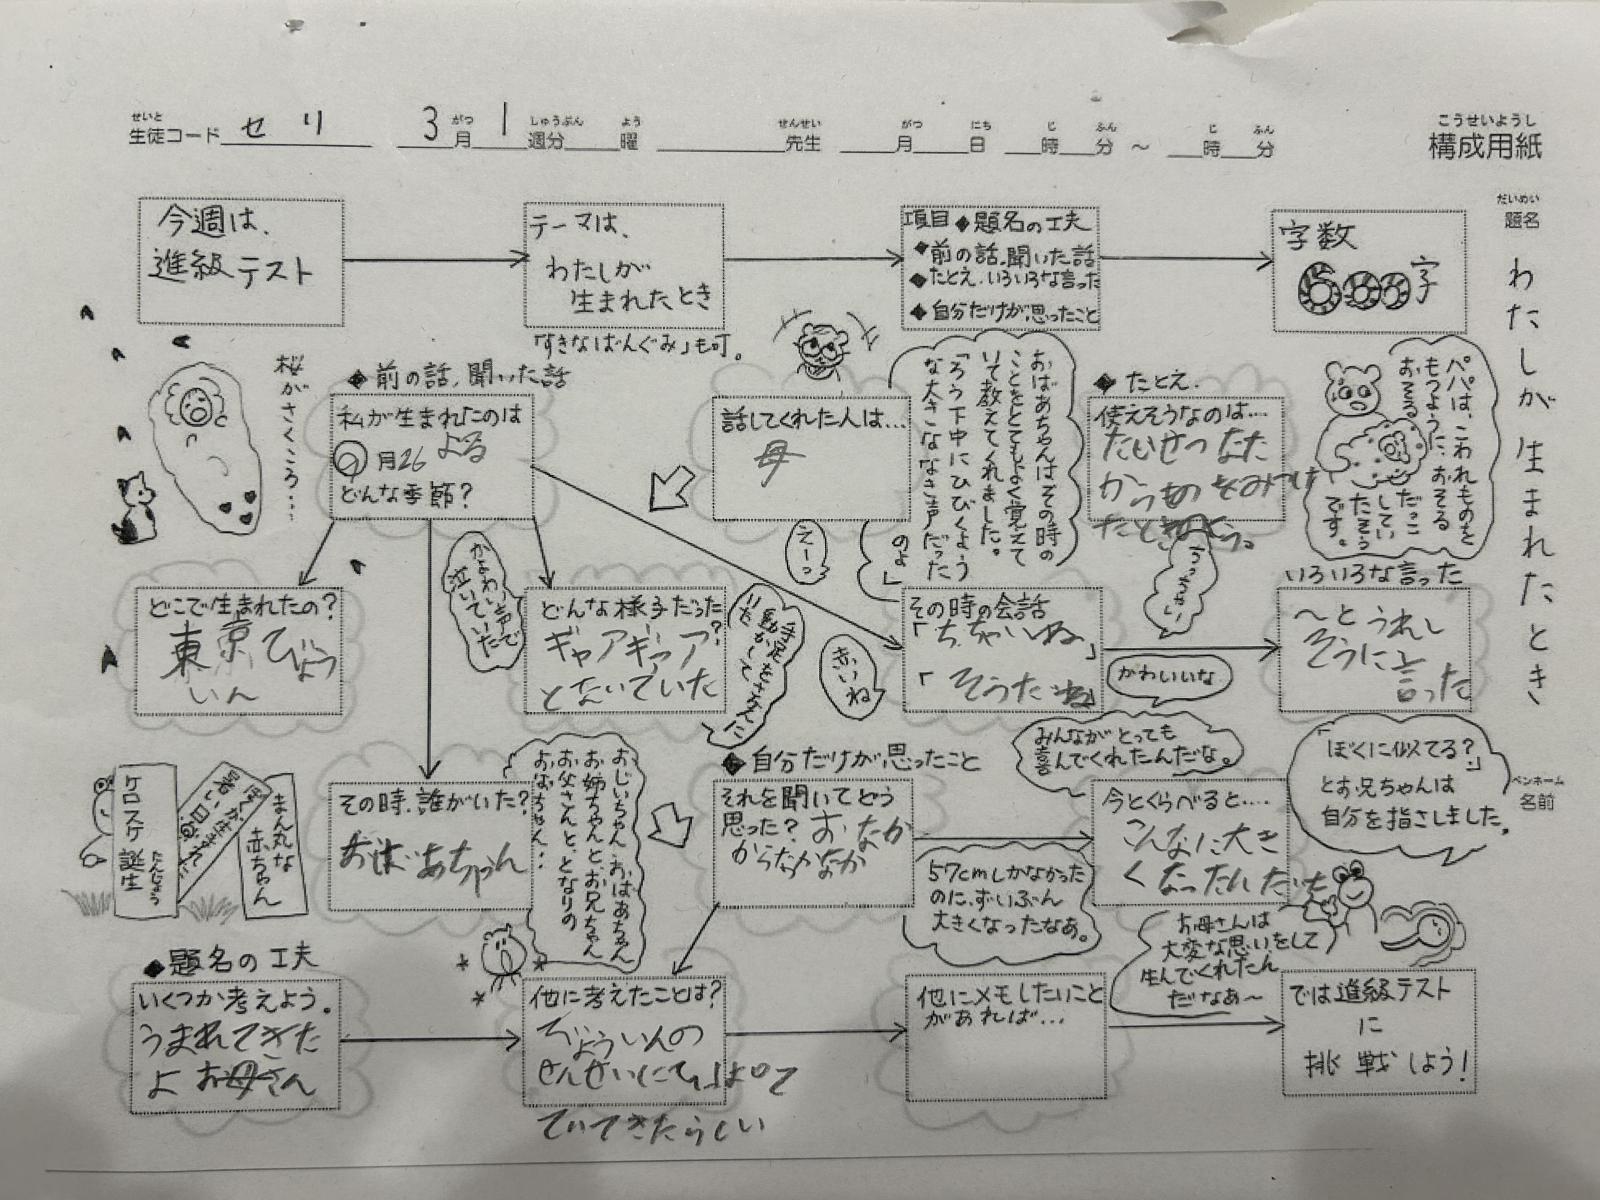 せいと
生徒コード セリ
3月 1週分 曜
がつ しゅうぶん よう
せんせい
先生
がつ にち じ ふん じ ふん
月 日 時 分 ～ 時 分
こうせいようし
構成用紙
だいめい
題名
わたしが生まれたとき
ペンネーム
名前
今週は、
進級テスト
テーマは、
わたしが
生まれたとき
「すきなばんぐみ」も可。
項目◆題名の工夫
◆前の話、聞いた話
◆たとえ、いろいろな言った
◆自分だけが思ったこと
字数
600字
桜がさくころ…
◆前の話、聞いた話
私が生まれたのは
月26 よる
どんな季節?
話してくれた人は…
母
おばあちゃんはその時の
ことをとてもよく覚えて
いて教えてくれました。
「ろう下中にひびくよう
な大きななき声だった
のよ」
◆たとえ
使えそうなのは…
たいせつなた
からものをみつけ
たときのよう。
パパは、こわれものを
もつように、おそる
おそる
だっこ
してい
たそう
です。
どこで生まれたの?
東京びょう
いん
かよわい声で
泣いていた
どんな様子だった?
ギャアギャア
とないていた
手足をさかんに
動かして
いた
えーっ
赤いね
その時の会話
「ちっちゃいね」
「そうだね」
かわいいな
いろいろな言った
～とうれし
そうに言った
ケロスケ誕生
たんじょう
暑い日
まん丸な
赤ちゃん
その時、誰がいた?
おばあちゃん
おじいちゃん、おばあちゃん
お姉ちゃんとお兄ちゃん
お父さんと、となりの
おばちゃん…
◆自分だけが思ったこと
それを聞いてどう
思った? おなか
からなかなか
みんながとっても
喜んでくれたんだな。
今とくらべると…
こんなに大き
くなったんだも
「ぼくに似てる?」
とお兄ちゃんは
自分を指さしました。
57cmしかなかった
のに、ずいぶん
大きくなったなあ。
お母さんは
大変な思いをして
生んでくれたん
だなあ～
◆題名の工夫
いくつか考えよう。
うまれてきた
よ お母さん
他に考えたことは?
びょういんの
せんせいに
でてきたらしい
他にメモしたいこと
があれば…
では進級テスト
に
挑戦しよう!